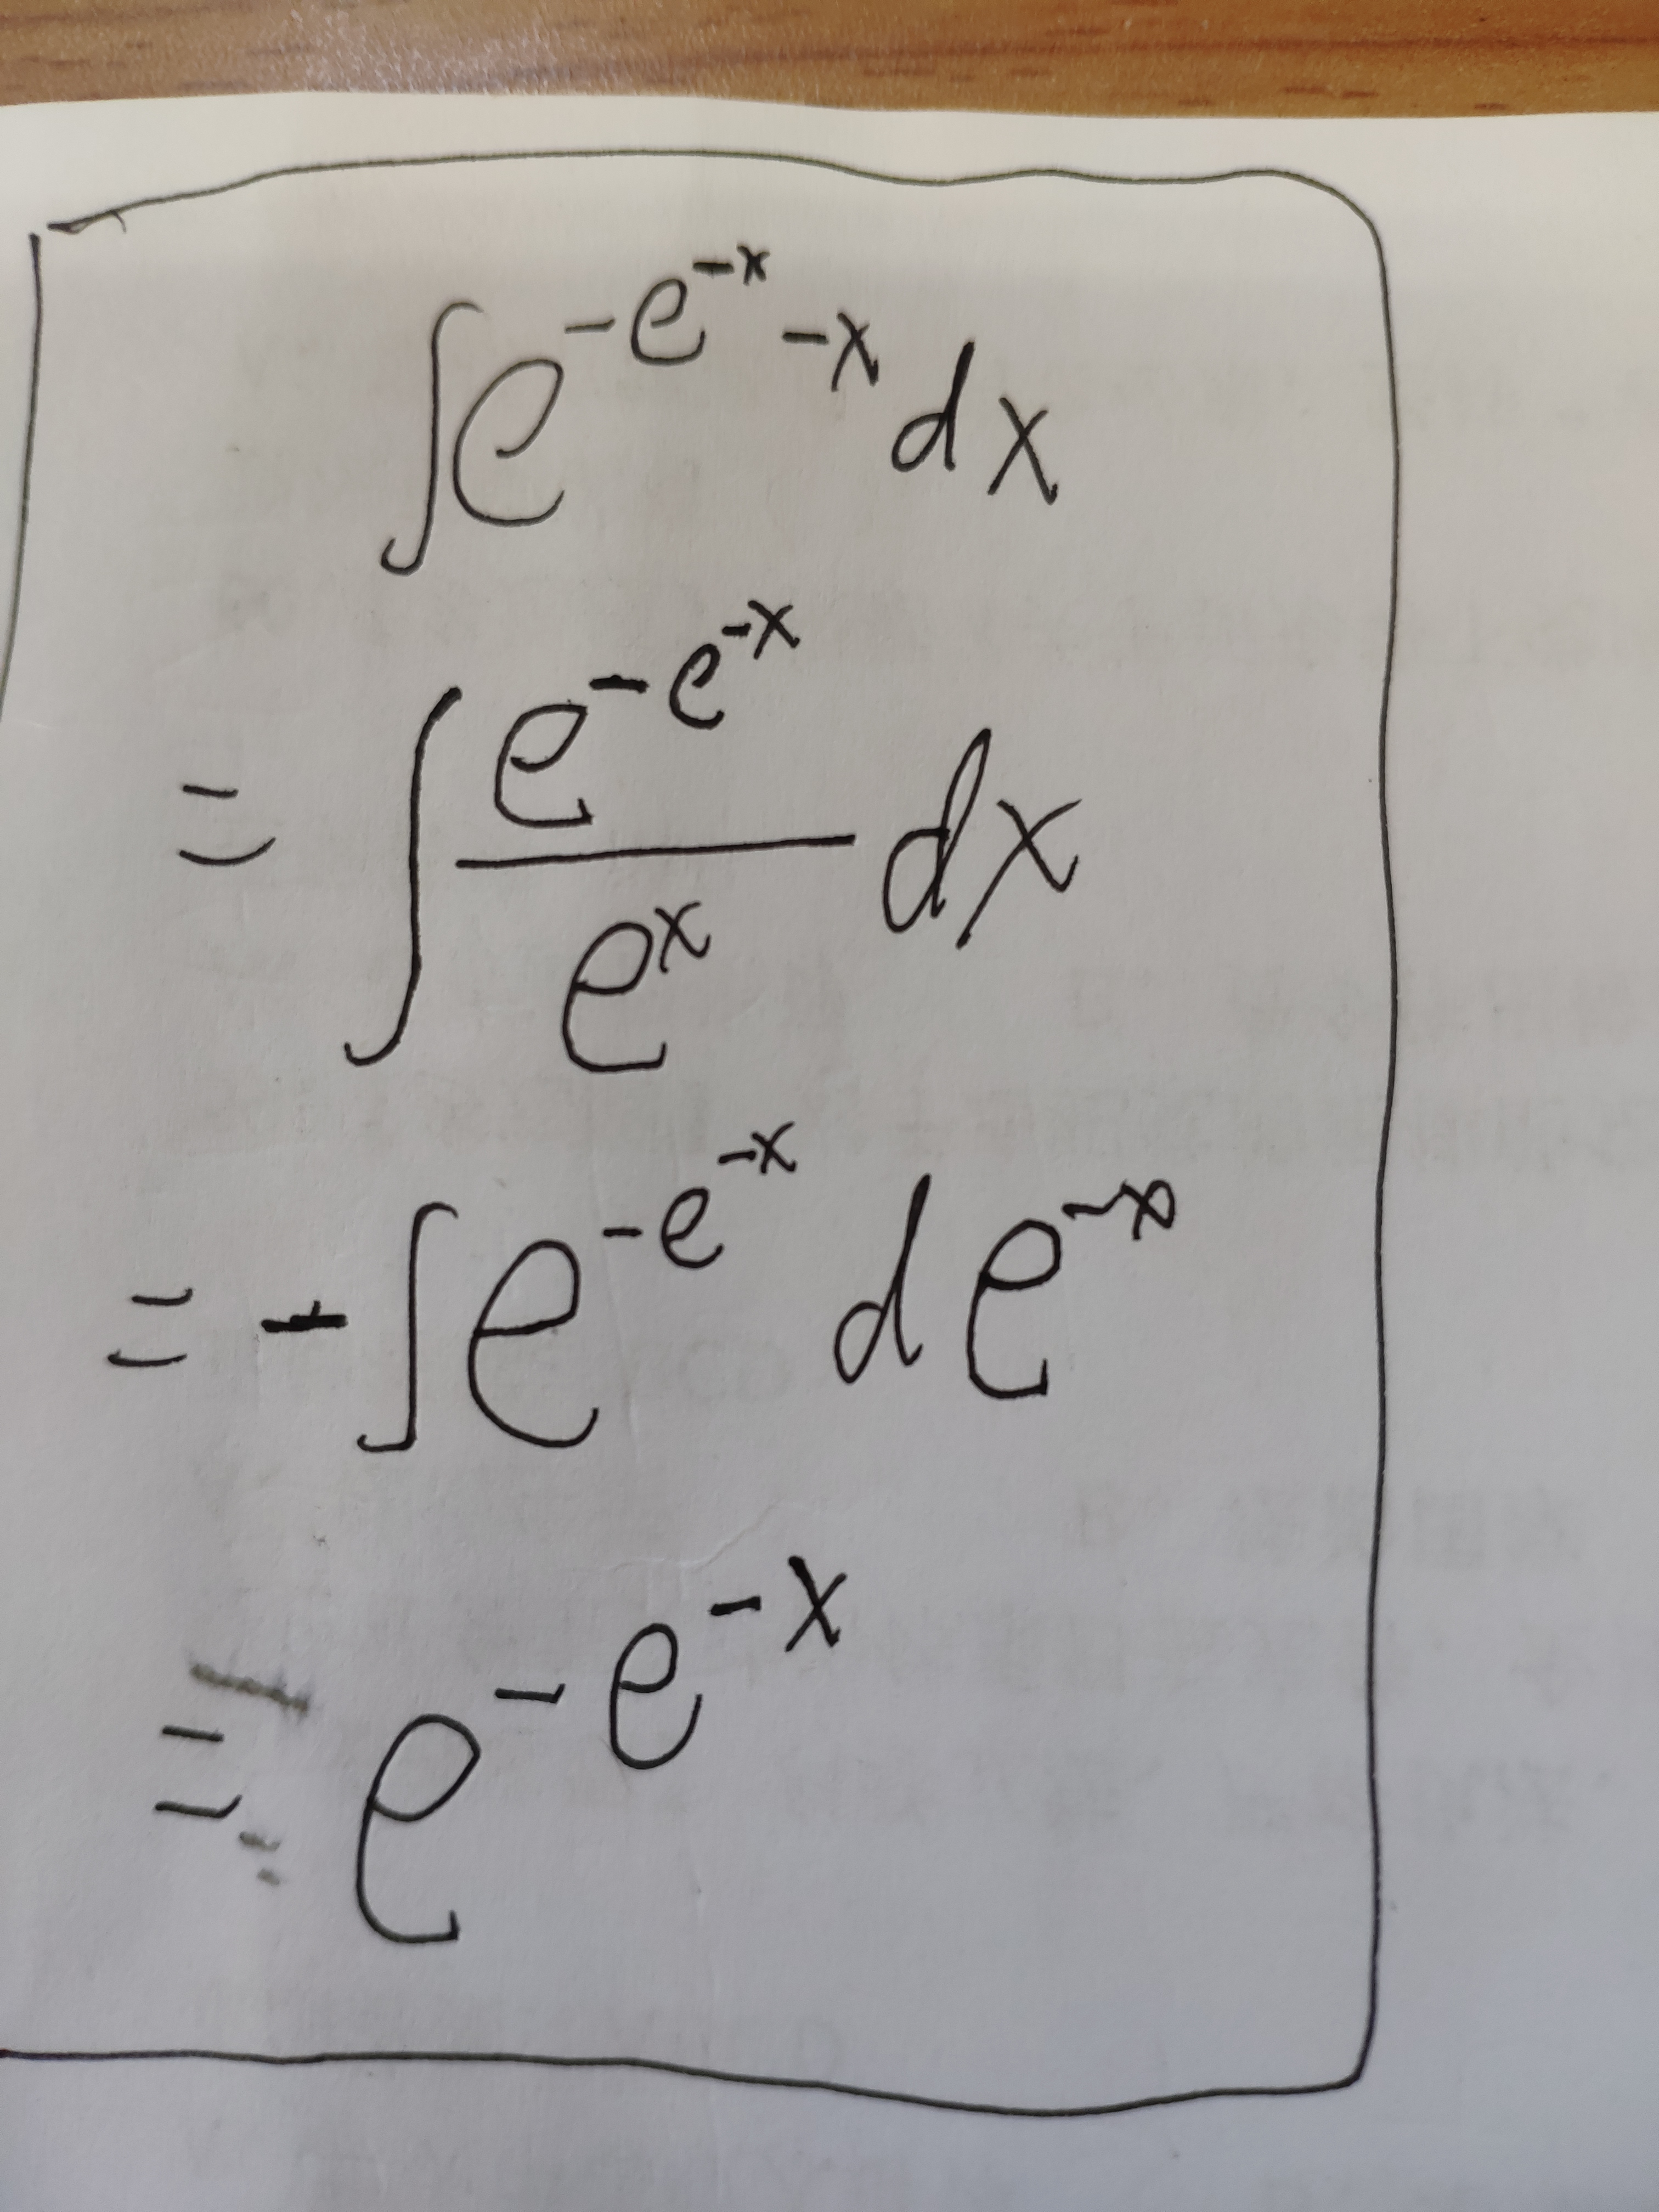 ∫e^{-e^{-x}-x}dx
=∫\frac{e^{-e^{-x}}}{e^{x}}dx
=-∫e^{-e^{-x}}de^{-x}
=e^{-e^{-x}}